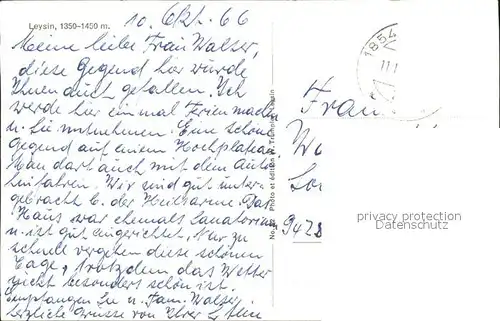 Leysin, 1350-1450 m.
10. Okt. 66
Meine liebe Frau Walser,
diese Gegend hier würde
Ihnen auch gefallen. Ich
werde hier einmal Ferien machen
u. Sie mitnehmen. Eine schöne
Gegend auf einem Hochplateau.
Man darf auch mit dem Auto
hinfahren. Wir sind gut unter-
gebracht b. der Heilsarme. Das
Haus war ehemals Sanatorium
u. ist gut eingerichtet. Nur zu
schnell vergehen diese schönen
Tage, trotzdem das Wetter
nicht besonders schön ist.
Empfangen Sie u. Fam. Walser
herzliche Grüsse von Ihrer
Photo et édition
1854
Frau
9428
privacy protection
Datenschutz